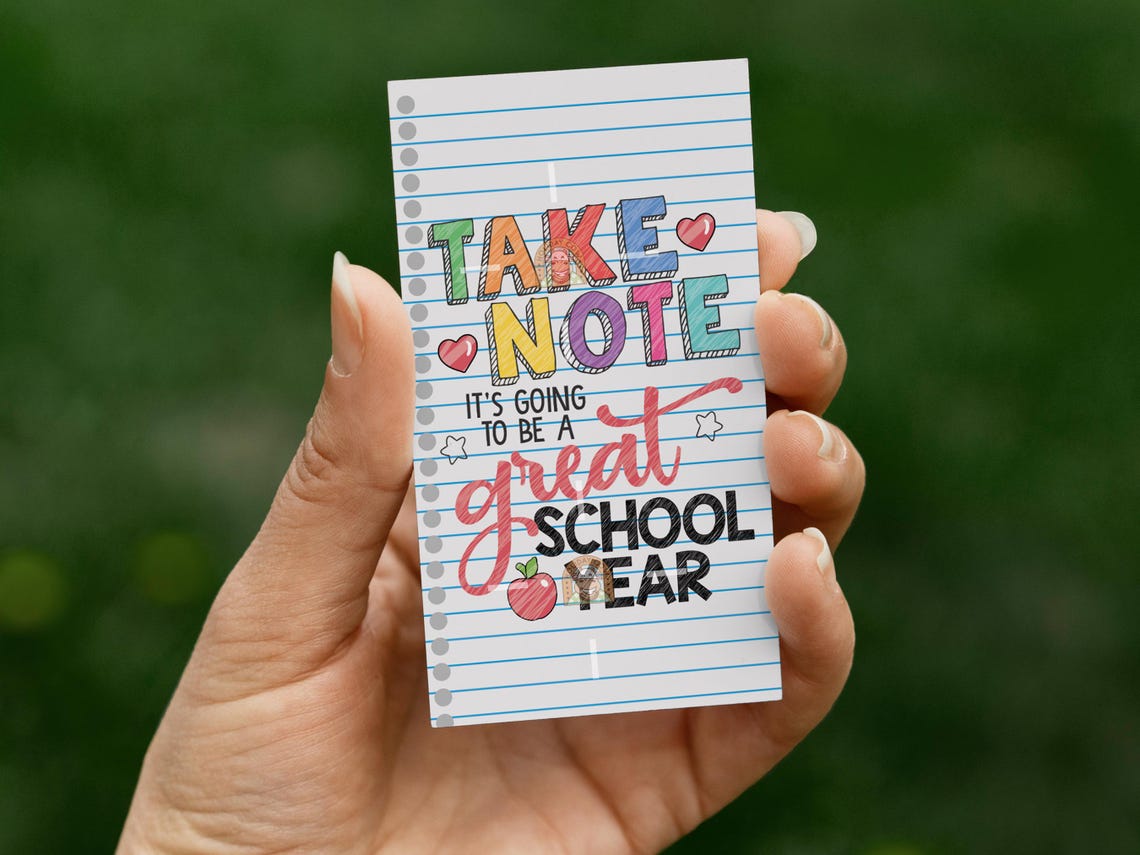 TAKE
NOTE
IT'S GOING
TO BE A
great
SCHOOL
YEAR